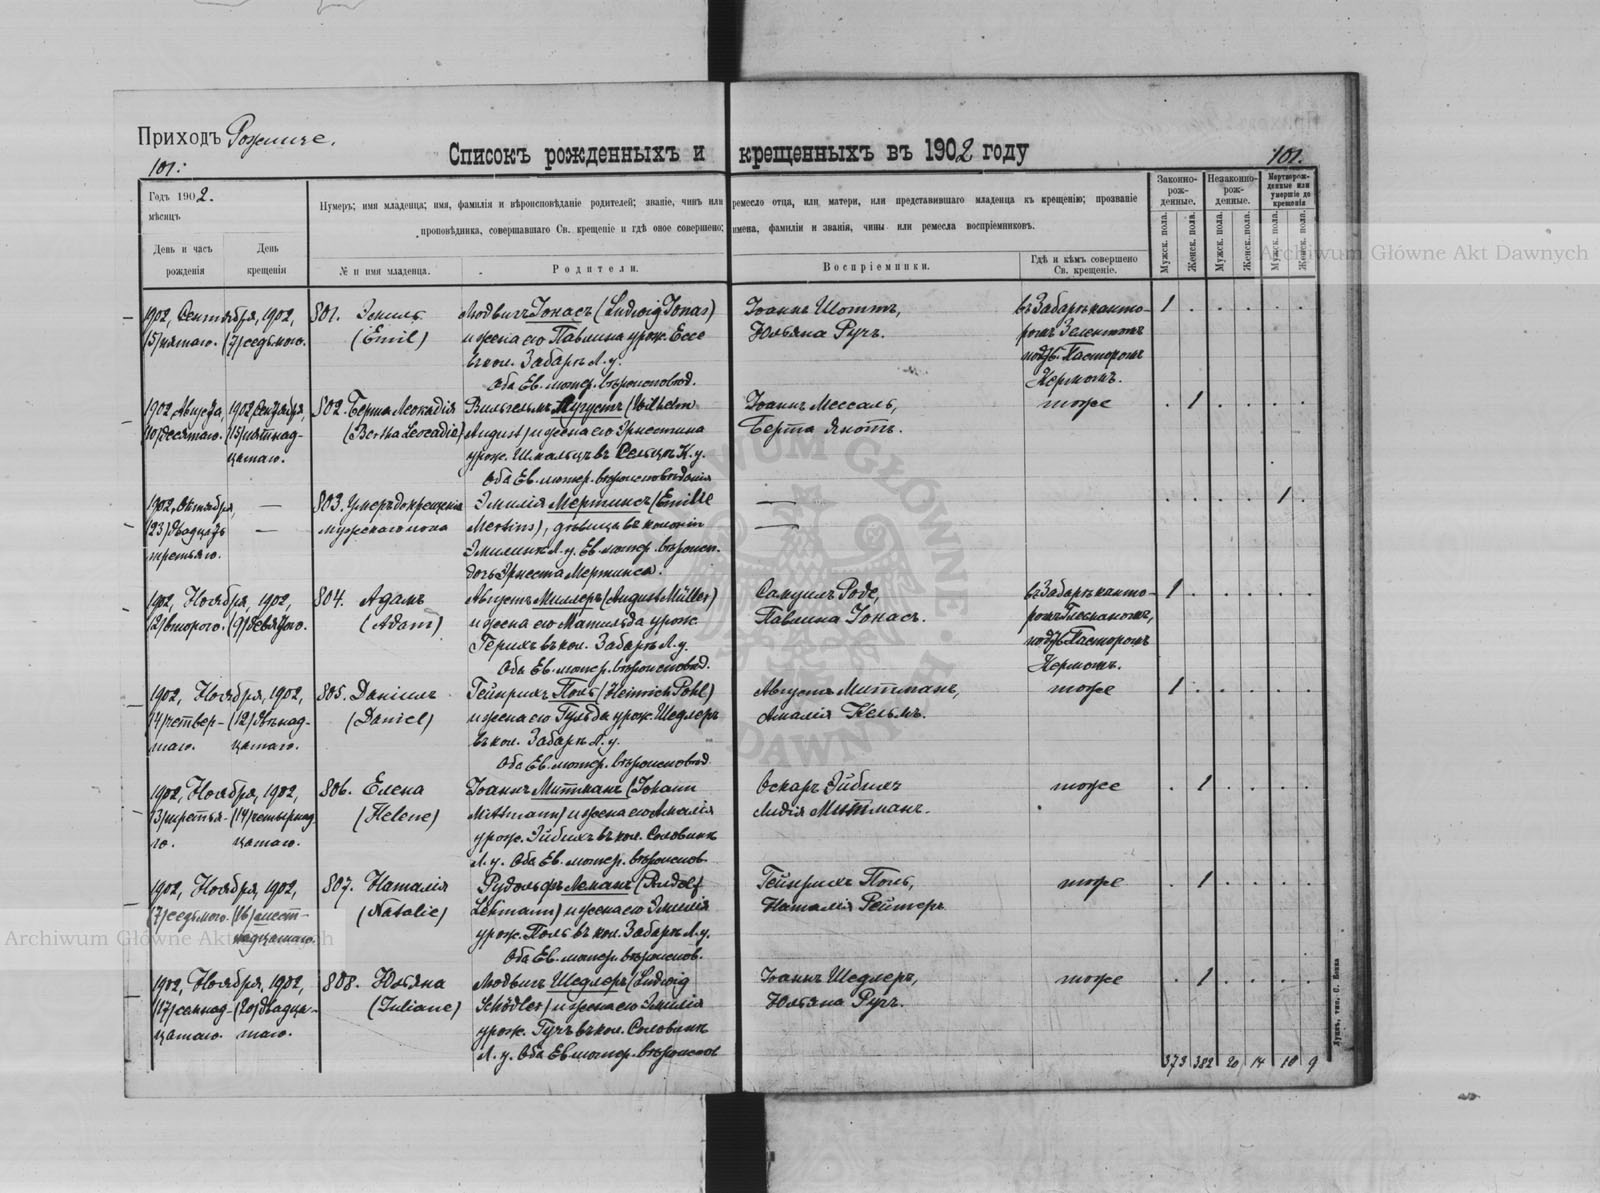 Приходъ Рожище.
101.
Списокъ рожденныхъ и крещенныхъ въ 1902 году
101.
Годъ 1902.
мѣсяцъ
День и часъ рожденія
День крещенія
Нумеръ; имя младенца; имя, фамилія и вѣроисповѣданіе родителей; званіе, чинъ или ремесло отца, или матери, или представившаго младенца къ крещенію; прозваніе
проповѣдника, совершавшаго Св. крещеніе и гдѣ оное совершено; имена, фамиліи и званія, чины или ремесла воспріемниковъ.
№ и имя младенца.
Родители.
Воспріемники.
Гдѣ и кѣмъ совершено Св. крещеніе.
Законно-рож-денные.
Незаконно-рож-денные.
Мертворож-денные или умершіе до крещенія
Мужск. пола.
Женск. пола.
Мужск. пола.
Женск. пола.
Мужск. пола.
Женск. пола.
1902, Сентября, 1902,
(5) пятаго. (7) седьмого.
801. Эмиль
(Emil)
Людвигъ Іонасъ (Ludwig Jonas)
и жена его Павлина урож. Ессе
въ кол. Забара Л. у.
Оба Ев. лютер. вѣроисповѣд.
Іоаннъ Шоттъ,
Юльяна Ручъ.
въ Забарѣ канто-
ромъ
подтв. Пасторомъ
Кермомъ.
1
1902, Августа, 1902 Сентября,
(10) десятаго. (15) пятнад-
цатаго.
802. Берта Леокадія
(Bertha Leocadia)
Вильгельмъ Аугустъ (Wilhelm
August) и жена его Эрнестина
урож. Шмальцъ въ Сельцѣ К. у.
Оба Ев. лютер. вѣроисповѣданія
Іоаннъ Мессаль,
Берта Янотъ.
тоже
1
1902, Октября,
(23) двадцать
третьяго.
803. Умеръ до крещенія
мужского пола
Эмилія Мертинсъ (Emilie
Mertins), дѣвица въ колоніи
Эмилинъ Л. у. Ев. лютер. вѣроисп.
дочь Эрнеста Мертинса.
1
1902, Ноября, 1902,
(2) второго. (9) девятого.
804. Адамъ
(Adam)
Августъ Миллеръ (August Müller)
и жена его Матильда урож.
Герихъ въ кол. Забара Л. у.
Оба Ев. лютер. вѣроисповѣд.
Самуилъ Роде,
Павлина Іонасъ.
въ Забарѣ канто-
ромъ
подтв. Пасторомъ
Кермомъ.
1
1902, Ноября, 1902,
(4) четвер- (12) двѣнад-
таго. цатаго.
805. Даніилъ
(Daniel)
Гейнрихъ Поль (Heinrich Pohl)
и жена его Гульда урож. Шедлеръ
въ кол. Забара Л. у.
Оба Ев. лютер. вѣроисповѣд.
Августъ Миттманъ,
Амалія Кельмъ.
тоже
1
1902, Ноября, 1902,
(3) третья- (14) четырнад-
го. цатаго.
806. Елена
(Helene)
Іоаннъ Миттманъ (Johann
Mittmann) и жена его Амалія
урож. Эйбихъ въ кол. Соловинъ
Л. у. Оба Ев. лютер. вѣроисповѣд.
Оскаръ Эйбихъ
Лидія Миттманъ.
тоже
1
1902, Ноября, 1902,
(7) седьмого. (16) шест-
надцатаго.
807. Наталія
(Natalie)
Рудольфъ Леманъ (Rudolf
Lehmann) и жена его Эмилія
урож. Поль въ кол. Забара Л. у.
Оба Ев. лютер. вѣроисповѣд.
Гейнрихъ Поль,
Наталія Рейтеръ
тоже
1
1902, Ноября, 1902,
(17) семнад- (20) двадца-
цатаго. таго.
808. Юльяна
(Juliane)
Людвигъ Шедлеръ (Ludwig
Schödler) и жена его Эмилія
урож. Гучъ въ кол. Соловинъ
Л. у. Оба Ев. лютер. вѣроисповѣд.
Іоаннъ Шедлеръ,
Юльяна Ручъ.
тоже
1
373 382 20 14 10 9
Луцкъ, тип. С. Бонка
Archiwum Główne Akt Dawnych
Archiwum Główne Akt Dawnych